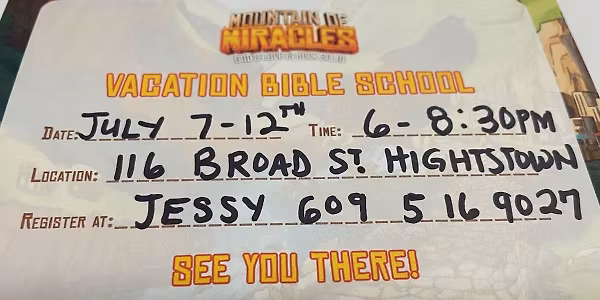 MOUNTAIN OF
MIRACLES
VACATION BIBLE SCHOOL
DATE: JULY 7-12TH TIME: 6-8:30PM
LOCATION: 116 BROAD ST. HIGHTSTOWN
REGISTER AT: JESSY 609 516 9027
SEE YOU THERE!